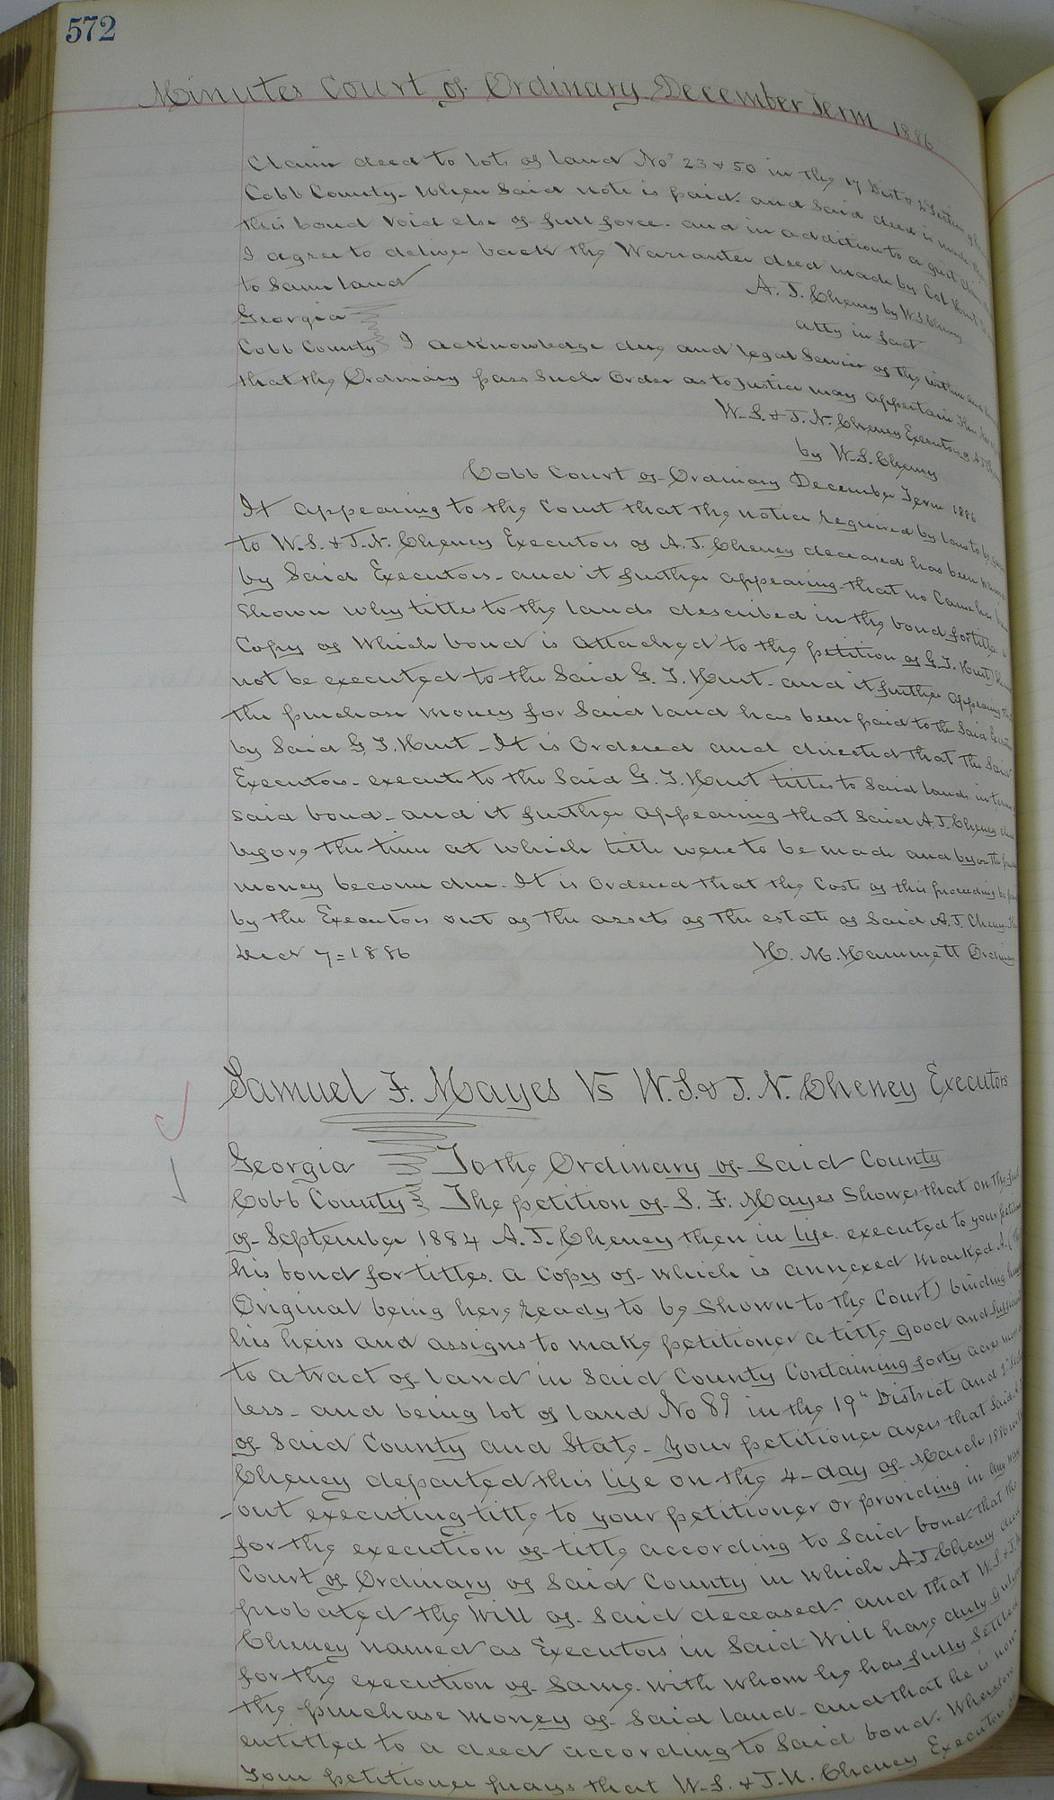 572
Minutes Court of Ordinary December Term 1886
Claim deed to lots of land Nos 23 & 50 in the 17 Dist & 2d Section of
Cobb County. When Said note is paid. and Said deed is made then
this bond void else of full force. and in addition to a quit claim
I agree to deliver back the Warrantee deed made by Col Hunt
to Same land
A. J. Cheney by W. S. Cheney
atty in fact
Georgia
Cobb County I acknowledge due and legal Service of the within and
that the Ordinary pass Such Order as to Justice may appertain
W. S. & J. N. Cheney Executors of A J
by W. S. Cheney
Cobb Court of Ordinary December Term 1886
It appearing to the Court that the notice required by law to be given
to W. S. & J. N. Cheney Executors of A. J. Cheney deceased has been
by Said Executors. and it further appearing that no Cause has been
Shown why titles to the lands described in the bond for titles
Copy of Which bond is attached to the petition of G. T. Hunt)
not be executed to the Said G. T. Hunt. and it further appearing that
the purchase money for Said land has been paid to the Said
by Said G T. Hunt. It is Ordered and directed that the Said
Executors. execute to the Said G. T. Hunt titles to Said lands in terms
said bond. and it further appearing that Said A. J. Cheney
before the time at which title were to be made and before the
money become due. It is Ordered that the Costs of this proceeding be
by the Executors out of the assets of the estate of Said A. J. Cheney
Decr 7=1886 H. M. Hammett Ordinary
Samuel F. Mayes Vs W. S. & J. N. Cheney Executors
Georgia To the Ordinary of Said County
Cobb County The petition of S. F. Mayes Shows that on the
of September 1884 A. J. Cheney then in life. executed to your petitioner
his bond for titles. a Copy of which is annexed marked A. (the
Original being here ready to be Shown to the Court) binding
his heirs and assigns to make petitioner a title good and Sufficient
to a tract of land in Said County Containing forty acres more or
less. and being lot of land No 89 in the 19th District and 2d
of Said County and State. Your petitioner avers that Said A J
Cheney departed this life on the 4-day of March 1886 with
-out executing title to your petitioner or providing in any way
for the execution of title according to Said bond. that the
Court of Ordinary of Said County in which A. J. Cheney
probated the Will of Said deceased. and that W. S. & J. N.
Cheney named as Executors in Said Will have duly
for the execution of Same. with whom he has fully Settled
the purchase money of Said land. and that he is now
entitled to a deed according to Said bond. Wherefore
Your petitioner prays that W. S. & J. N. Cheney Executors